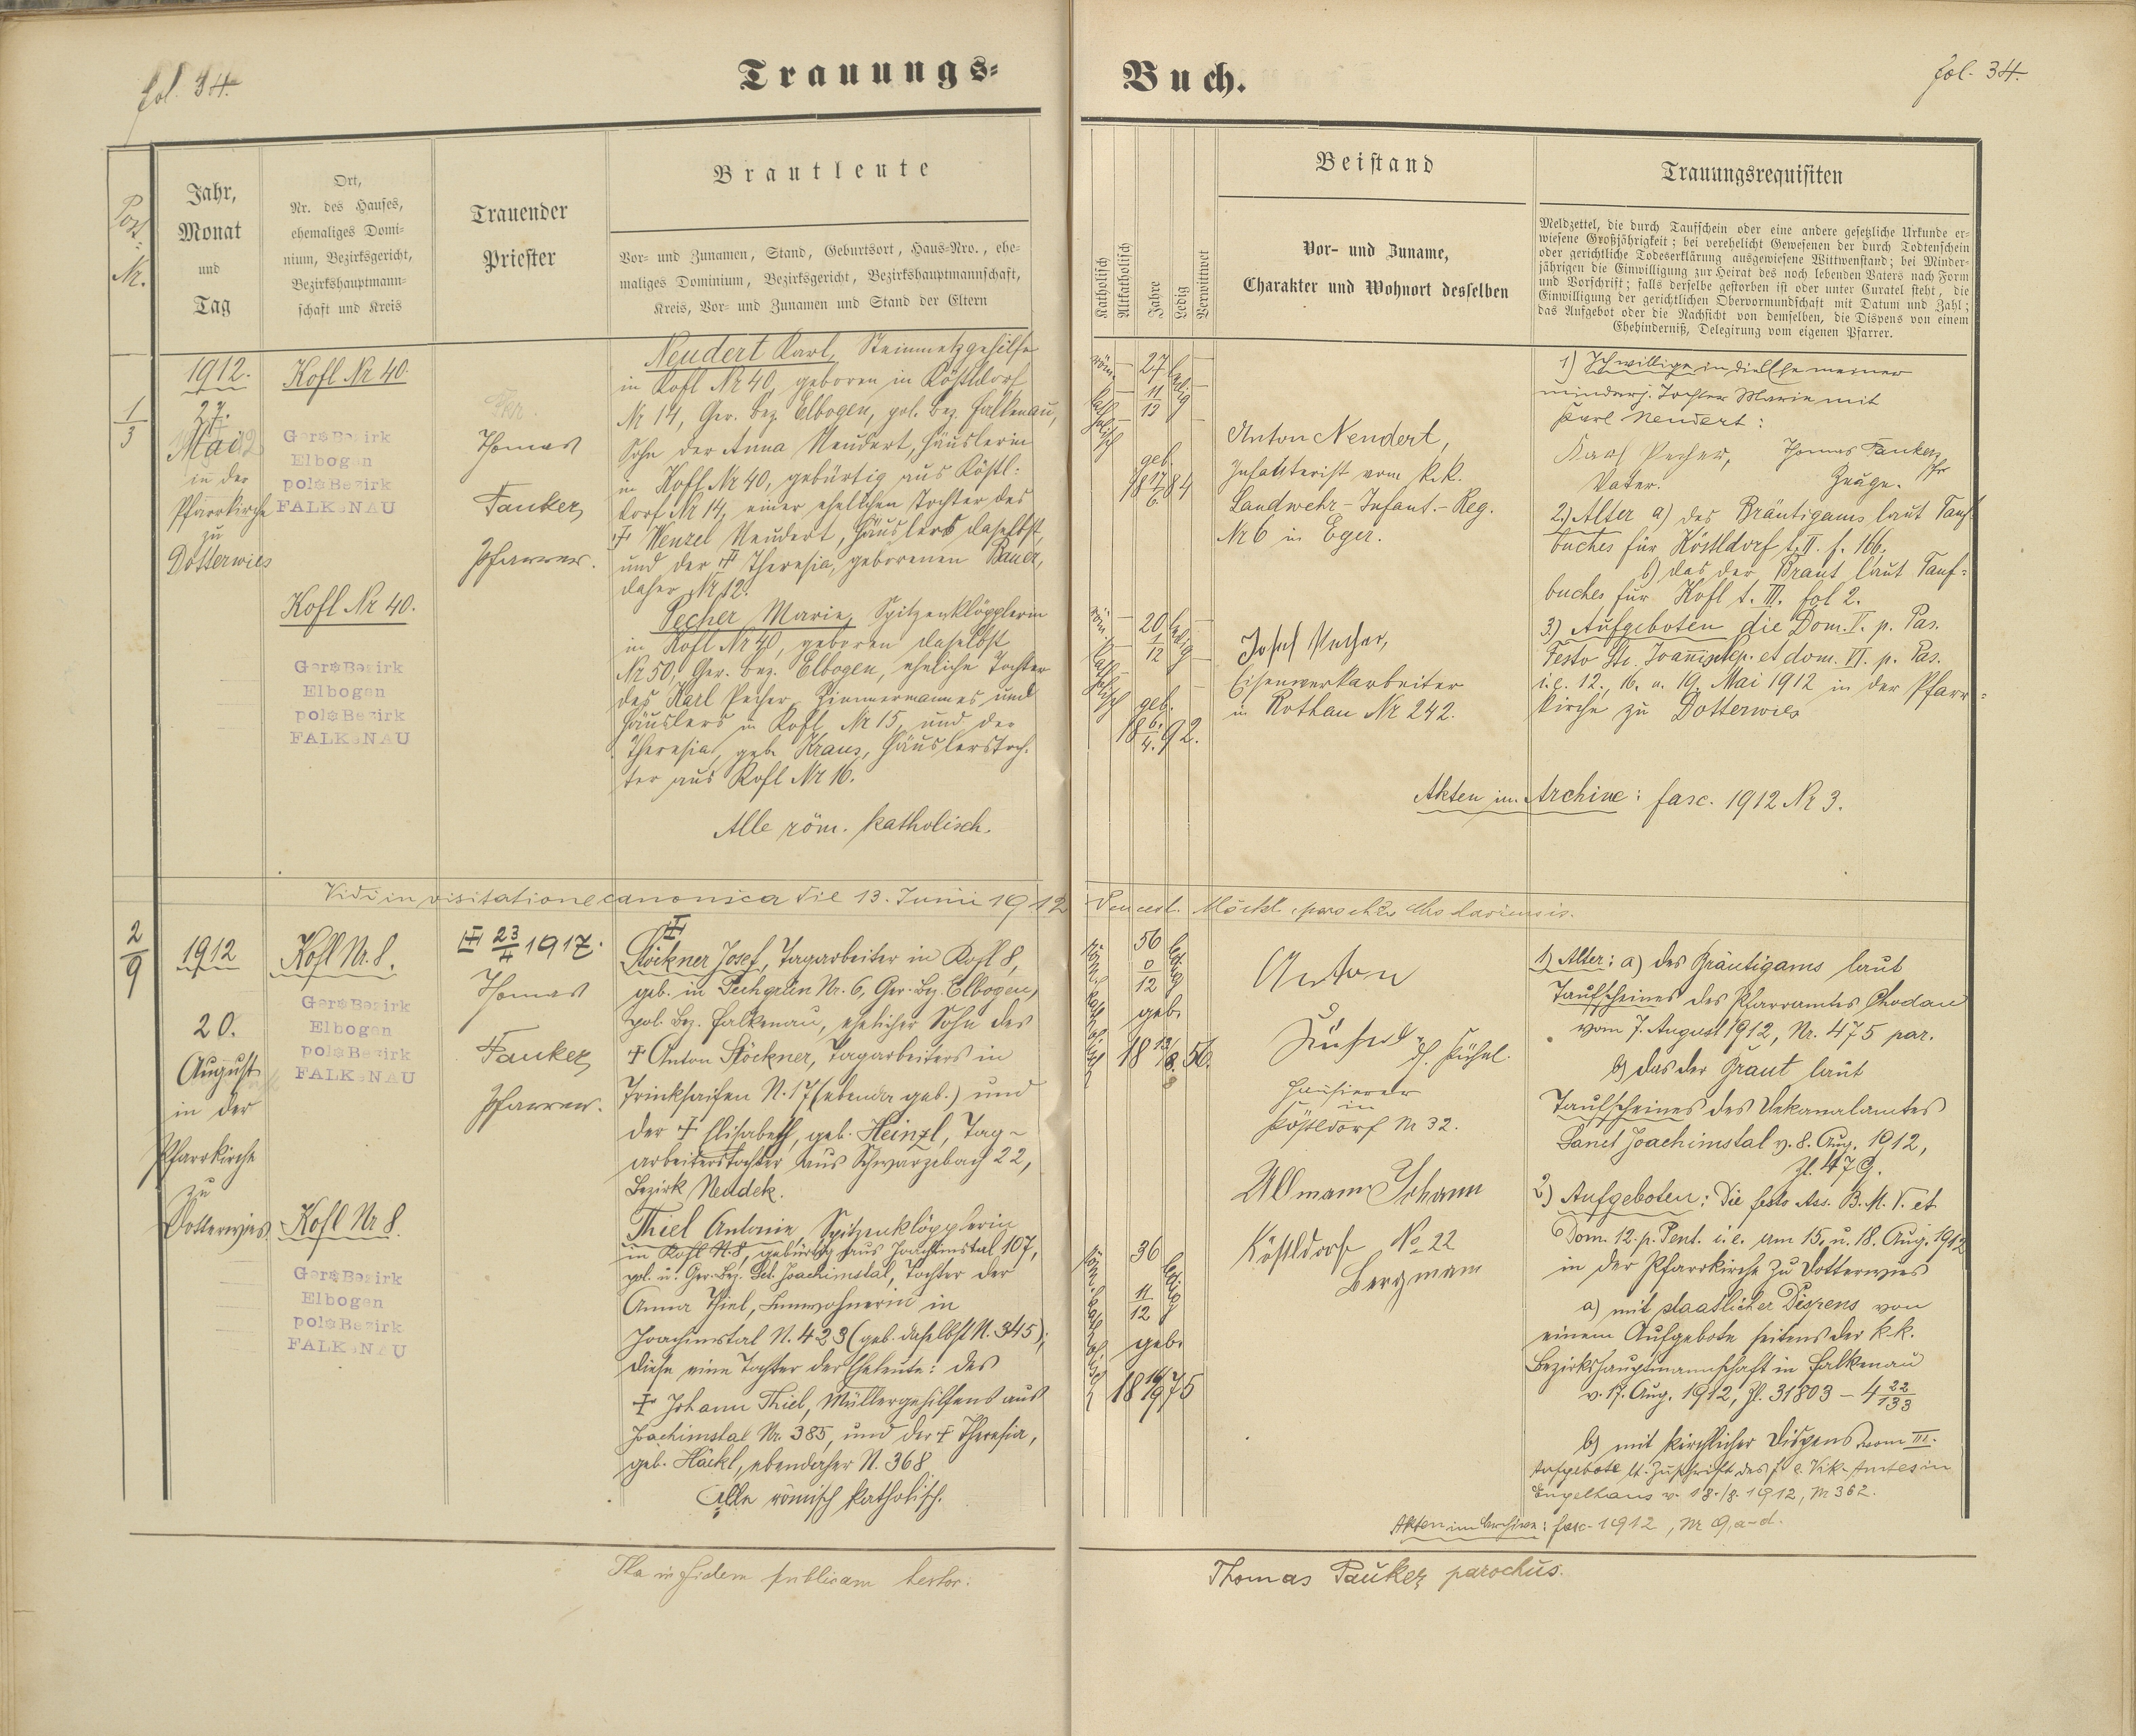 fol. 34.
Trauungs-
Buch.
fol. 34.
Post Nr.
Jahr,
Monat
und
Tag
Ort,
Nr. des Hauses,
ehemaliges Domi-
nium, Bezirksgericht,
Bezirkshauptmann-
schaft und Kreis
Trauender
Priester
Brautleute
Vor- und Zunamen, Stand, Geburtsort, Haus-Nro., ehe-
maliges Dominium, Bezirksgericht, Bezirkshauptmannschaft,
Kreis, Vor- und Zunamen und Stand der Eltern
Katholisch
Altkatholisch
Jahre
Ledig
Verwittwet
Beistand
Vor- und Zuname,
Charakter und Wohnort desselben
Trauungsrequisiten
Meldzettel, die durch Taufschein oder eine andere gesetzliche Urkunde er-
wiesene Großjährigkeit; bei verehelicht Gewesenen der durch Todtenschein
oder gerichtliche Todeserklärung ausgewiesene Wittwenstand; bei Minder-
jährigen die Einwilligung zur Heirat des noch lebenden Vaters nach Form
und Vorschrift; falls derselbe gestorben ist oder unter Curatel steht, die
Einwilligung der gerichtlichen Obervormundschaft mit Datum und Zahl;
das Aufgebot oder die Nachsicht von demselben, die Dispens von einem
Ehehinderniß, Delegirung vom eigenen Pfarrer.
1/3
1912.
27.
Mai
in der
Pfarrkirche
zu
Dotterwies
Kofl Nr 40.
Ger: Bezirk
Elbogen
pol: Bezirk
FALKENAU
Kofl Nr 40.
Ger: Bezirk
Elbogen
pol: Bezirk
FALKENAU
Thomas
Pauker,
Pfarrer.
Neudert Karl, Steinmetzgehilfe
in Kofl Nr 40, geboren in Köstldorf
Nr 14, Ger. Bez. Elbogen, pol. Bez. Falkenau,
Sohn der Anna Neudert, Häuslerin
in Kofl Nr 40, gebürtig aus Köstl-
dorf Nr 14, einer ehelichen Tochter des
† Wenzel Neudert, Häuslers daselbst,
und der † Theresia, geborenen Bauer,
daher Nr 12.
Pecher Marie, Spitzenklöpplerin
in Kofl Nr 40, geboren daselbst
Nr 50, Ger. Bez. Elbogen, eheliche Tochter
des Karl Pecher, Zimmermannes und
Häuslers in Kofl Nr 15, und der
Theresia, geb. Kraus, Häuslerstoch-
ter aus Kofl Nr 16.
Alle röm. katholisch.
röm. katholisch
27 11/12
ledig
geb. 17/6 1884
röm. katholisch
20 1/12
ledig
geb. 6./4. 1892.
Anton Neudert,
Infanterist vom k.k.
Landwehr-Infant.-Reg.
Nr 6 in Eger.
Josef Pecher,
Eisenwerkarbeiter
in Rothau Nr 242.
1) Ich willige in die Ehe meiner
minderj. Tochter Marie mit
Karl Neudert:
Karl Pecher, Thomas Pauker, Pfr
Vater. Zeuge.
2.) Alter a) des Bräutigams laut Tauf-
buches für Köstldorf t. II. f. 166.
b) das der Braut laut Tauf-
buches für Kofl t. III. fol 2.
3.) Aufgeboten die Dom. V. p. Pas.
Festo Sti. Joannis Nep. et dom. VI. p. Pas.
i.e. 12., 16. u. 19. Mai 1912 in der Pfarr-
kirche zu Dotterwies
Akten im Archive: fasc. 1912 Nr 3.
Vidi in visitatione canonica die 13. Junii 1912
2/9
1912
20.
August
in der
Pfarrkirche
zu
Dotterwies
Kofl Nr. 8.
Ger: Bezirk
Elbogen
pol: Bezirk
FALKENAU
Kofl Nr 8.
Ger: Bezirk
Elbogen
pol: Bezirk
FALKENAU
23/4 1917.
Thomas
Pauker,
Pfarrer.
Stöckner Josef, Tagarbeiter in Kofl 8,
geb. in Pechgrün Nr. 6, Ger.-Bez. Elbogen,
pol. Bez. Falkenau, ehelicher Sohn des
† Anton Stöckner, Tagarbeiters in
Trinksaifen N. 17 (ebenda geb.) und
der † Elisabeth, geb. Heinzl, Tag-
arbeiterstochter aus Schwarzebach 22,
Bezirk Neudek.
Thiel Antonie, Spitzenklöpplerin
in Kofl N. 8, gebürtig aus Joachimstal 107,
pol. u. Ger. Bez. Sct. Joachimstal, Tochter der
Anna Thiel, Innwohnerin in
Joachimstal N. 423 (geb. daselbst N. 345);
diese eine Tochter der Eheleute: des
† Johann Thiel, Müllergehilfens aus
Joachimstal Nr. 385, und der † Theresia,
geb. Häckl, ebendaher N. 368
Alle römisch katholisch.
röm. katholisch
56 0/12
ledig
geb. 1856.
röm. katholisch
36 11/12
ledig
geb. 1875
Anton
Hausierer
in
Köstldorf Nr 32.
Ullmann Johann
Köstldorf No 22
Bergmann
1) Alter: a) des Bräutigams laut
Taufscheines des Pfarramtes Chodau
vom 7. August 1912, Nr. 475 par.
b) das der Braut laut
Taufscheines des Dekanalamtes
Sanct Joachimstal v. 8. Aug. 1912,
Zl. 479.
2) Aufgeboten: die festo Ass. B. M. V. et
Dom. 12. p. Pent. i.e. am 15. u. 18. Aug. 1912
in der Pfarrkirche zu Dotterwies
a) mit staatlicher Dispens von
einem Aufgebote seitens der k.k.
Bezirkshauptmannschaft in Falkenau
v. 17. Aug. 1912, Zl. 31803 – 4 22/133
b) mit kirchlicher Dispens vom III.
Aufgebote lt. Zuschrift des f. e. Vik.-Amtes in
Engelhaus v. 18./8. 1912, Nr 362.
Akten im Archive: fasc. 1912, Nr 9, a-d.
Ita in fidem publicam testor:
Thomas Pauker, parochus.